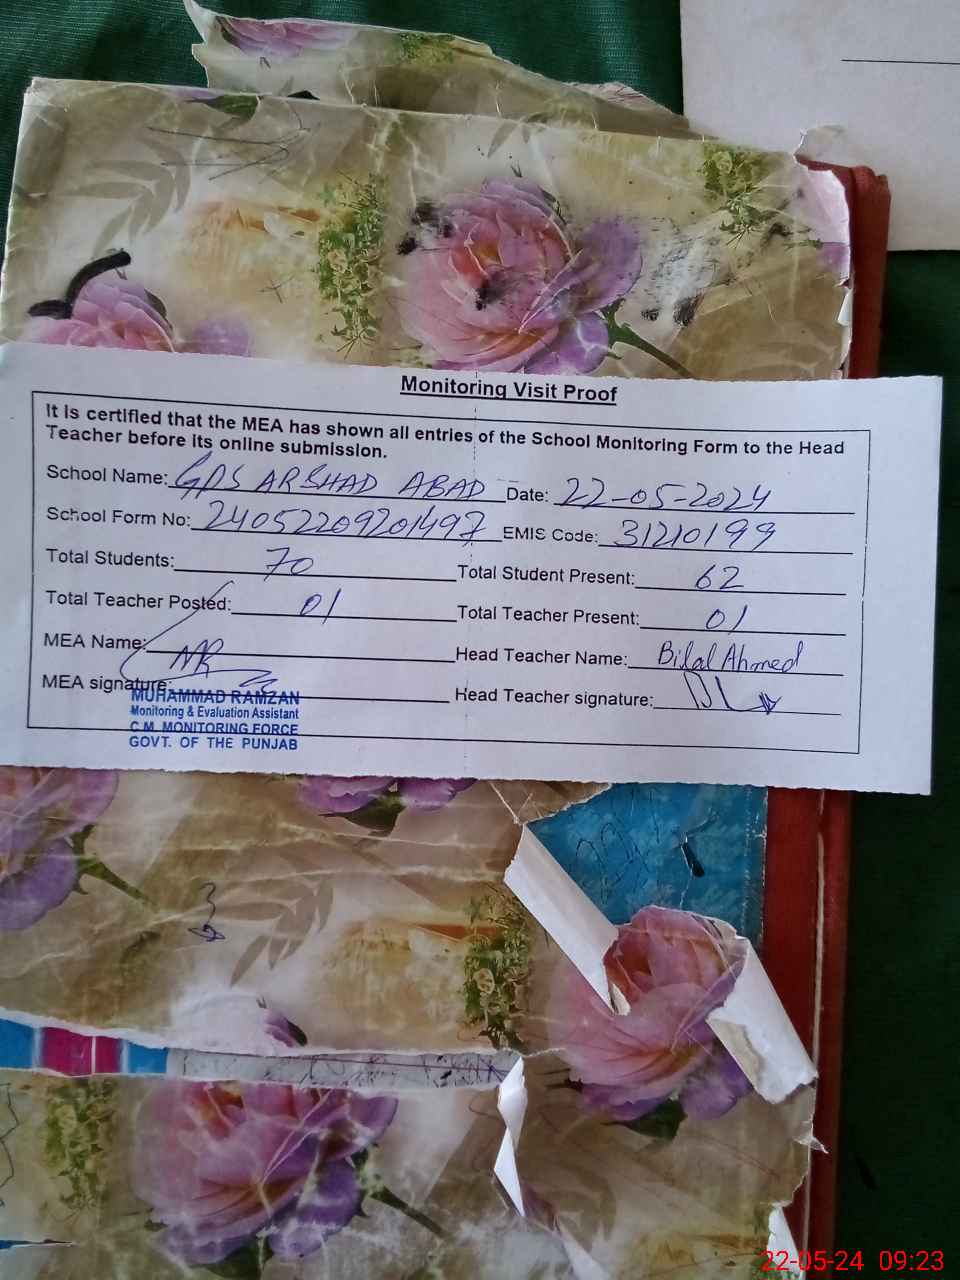 Monitoring Visit Proof
It is certified that the MEA has shown all entries of the School Monitoring Form to the Head
Teacher before its online submission.
School Name: GPS ARSHAD ABAD Date: 22-05-2024
School Form No: 24052209201497 EMIS Code: 31210199
Total Students: 70 Total Student Present: 62
Total Teacher Posted: 01 Total Teacher Present: 01
MEA Name: Head Teacher Name: Bilal Ahmed
MEA signature: Head Teacher signature:
MUHAMMAD RAMZAN
Monitoring & Evaluation Assistant
C.M. MONITORING FORCE
GOVT. OF THE PUNJAB
22-05-24 09:23